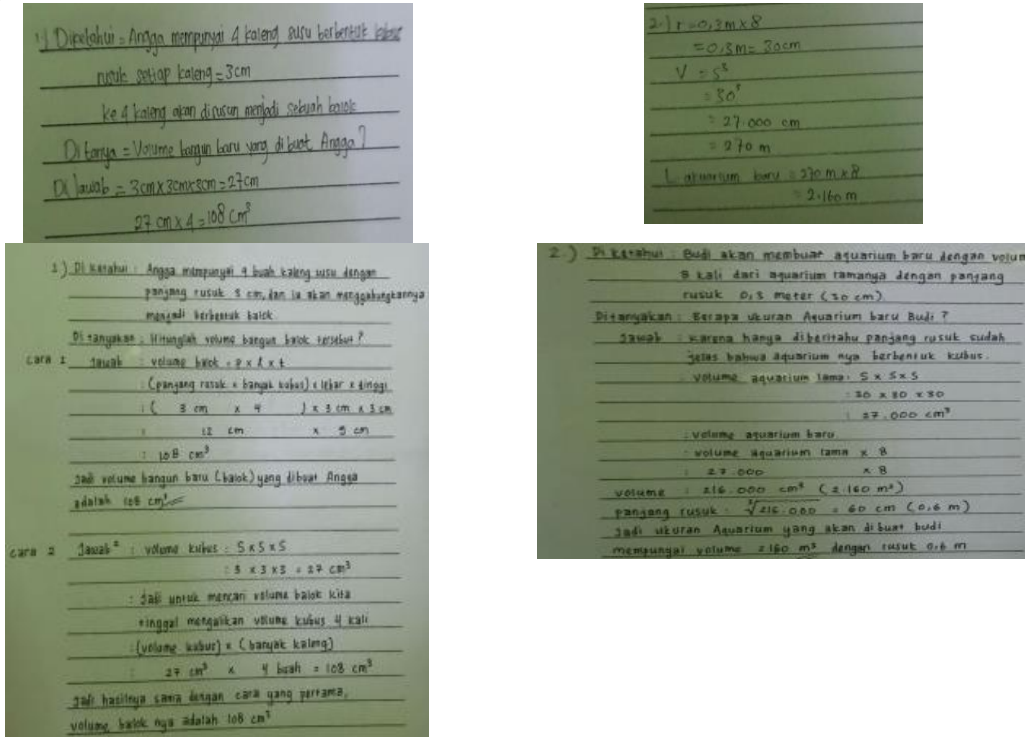 1.) Diketahui = Angga mempunyai 4 kaleng susu berbentuk kubus
rusuk setiap kaleng = 3cm
ke 4 kaleng akan disusun menjadi sebuah balok
Ditanya = Volume bangun baru yang dibuat Angga?
Dijawab = 3cm x 3cm x 3cm = 27cm
27 cm x 4 = 108 cm³
2.) r = 0,3m x 8
= 0,3m = 30cm
V = s³
= 30³
= 27.000 cm
= 270 m
L akuarium baru = 270 m x 8
= 2.160 m
1.) Di ketahui : Angga mempunyai 4 buah kaleng susu dengan
panjang rusuk 3 cm, dan ia akan menggabungkannya
menjadi berbentuk balok.
Di tanyakan : Hitunglah volume bangun balok tersebut?
cara 1 Jawab : volume balok = p x l x t
: (panjang rusuk x banyak kubus) x lebar x tinggi
: ( 3 cm x 4 ) x 3 cm x 3 cm
: 12 cm x 9 cm
: 108 cm³
Jadi volume bangun baru (balok) yang dibuat Angga
adalah 108 cm³
cara 2 Jawab² : volume kubus : S x S x S
: 3 x 3 x 3 = 27 cm³
: Jadi untuk mencari volume balok kita
tinggal mengalikan volume kubus 4 kali
: (volume kubus) x (banyak kaleng)
: 27 cm³ x 4 buah = 108 cm³
Jadi hasilnya sama dengan cara yang pertama,
volume balok nya adalah 108 cm³
2.) Di ketahui : Budi akan membuat aquarium baru dengan volum
8 kali dari aquarium lamanya dengan panjang
rusuk 0,3 meter (30 cm).
Ditanyakan : Berapa ukuran Aquarium baru Budi ?
Jawab : karena hanya diberitahu panjang rusuk sudah
jelas bahwa aquarium nya berbentuk kubus.
: volume aquarium lama : S x S x S
: 30 x 30 x 30
: 27.000 cm³
: volume aquarium baru
: volume aquarium lama x 8
: 27.000 x 8
volume : 216.000 cm³ (2.160 m³)
panjang rusuk : ∛216.000 = 60 cm (0,6 m)
Jadi ukuran Aquarium yang akan di buat budi
mempunyai volume 2160 m³ dengan rusuk 0,6 m